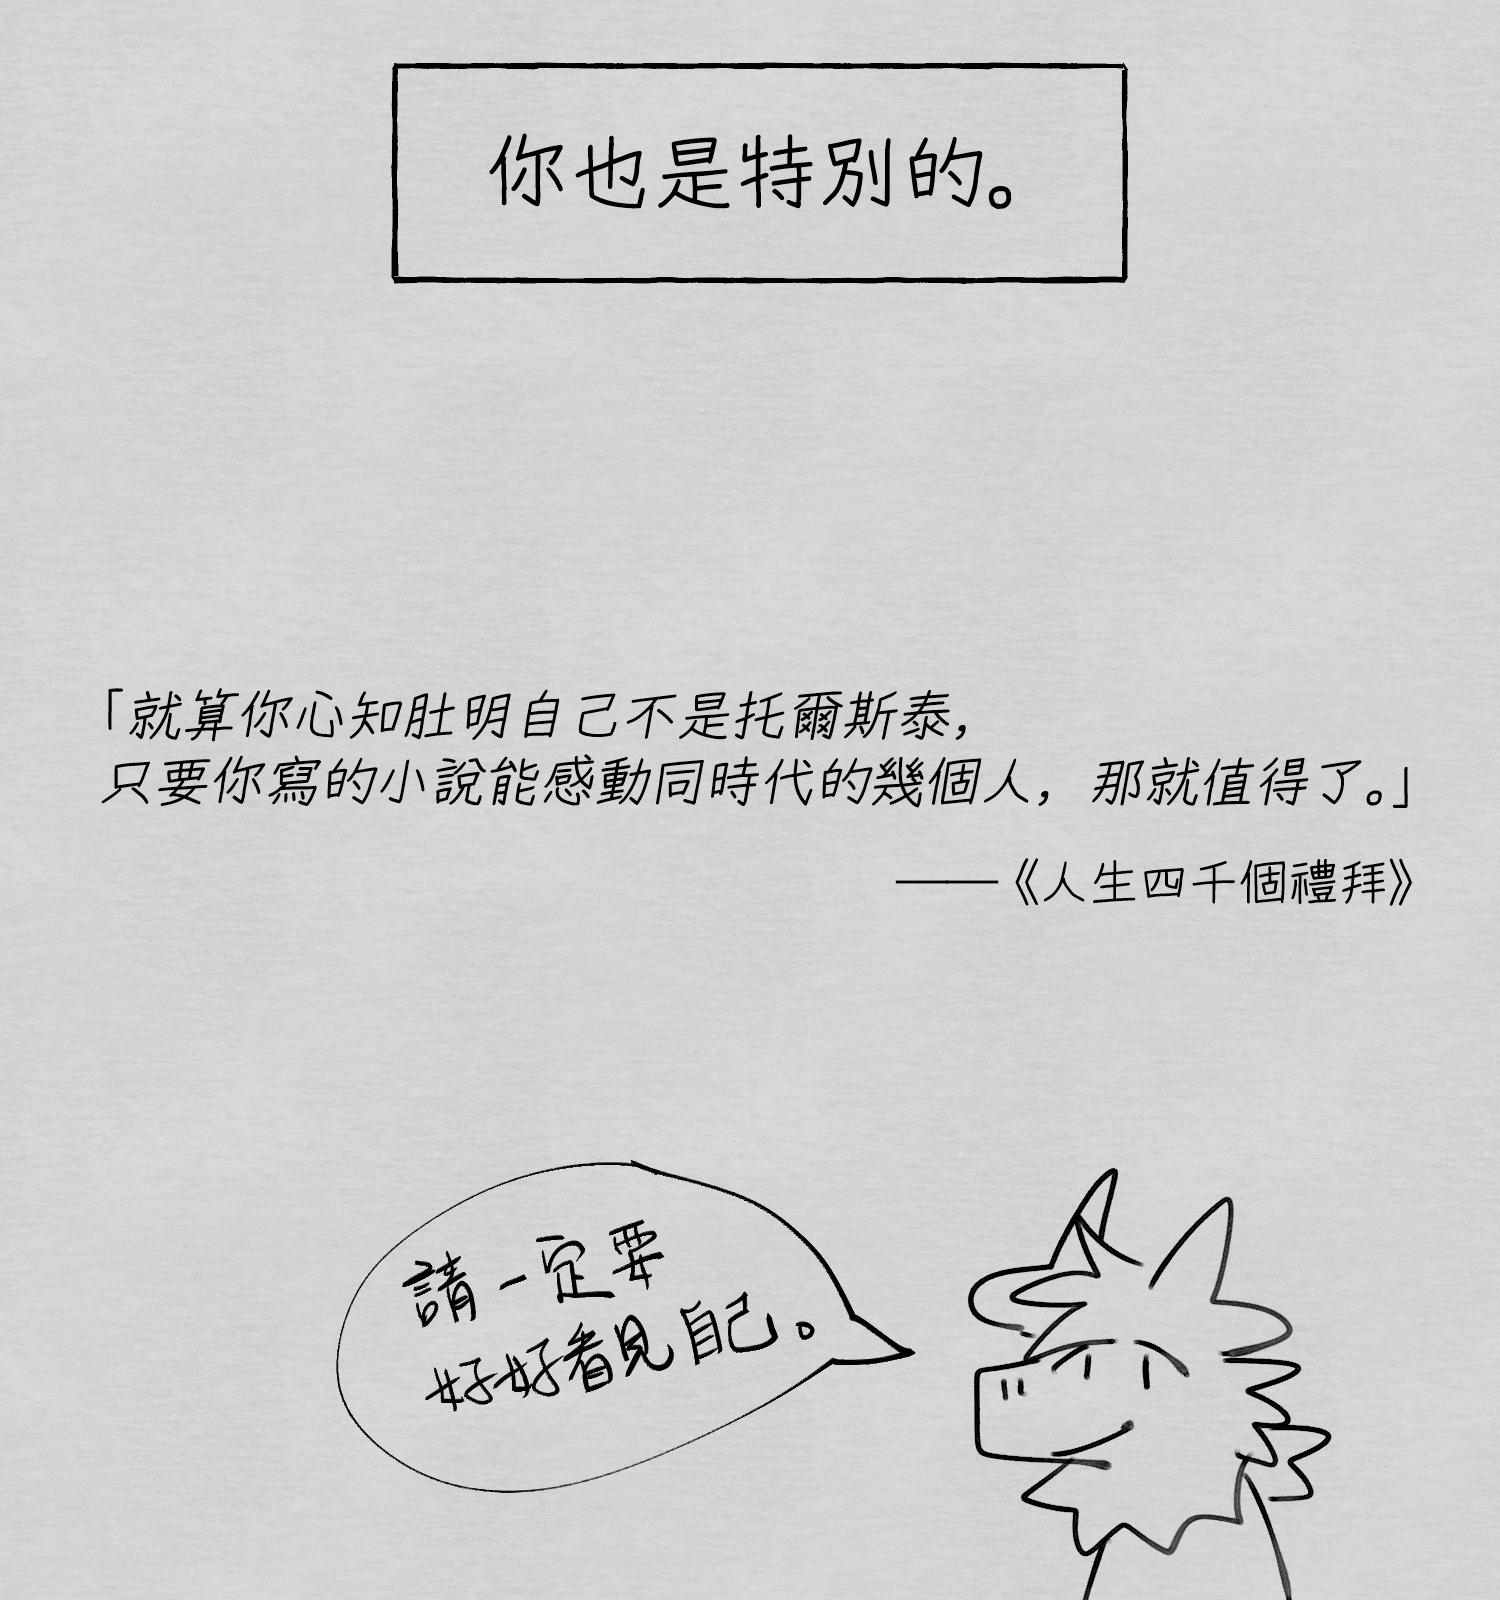 你也是特別的。
「就算你心知肚明自己不是托爾斯泰，
只要你寫的小說能感動同時代的幾個人，那就值得了。」
——《人生四千個禮拜》
請一定要
好好看見自己。